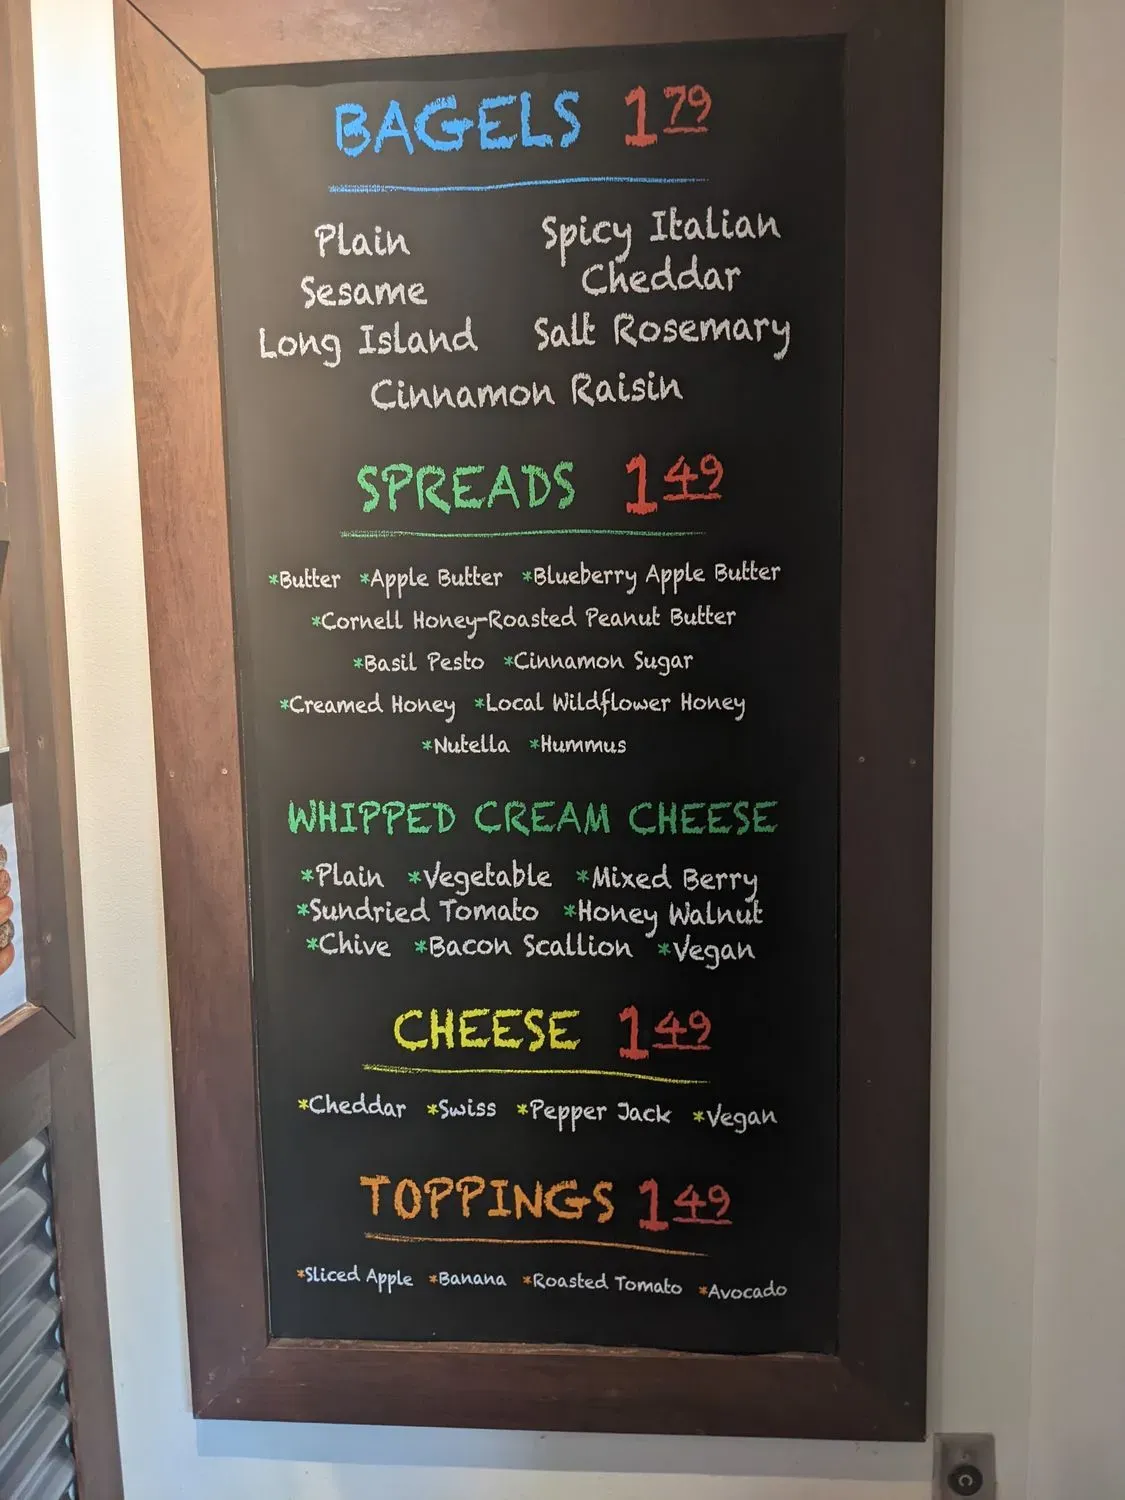 BAGELS 1 79
Plain
Sesame
Long Island
Spicy Italian
Cheddar
Salt Rosemary
Cinnamon Raisin
SPREADS 1 49
*Butter *Apple Butter *Blueberry Apple Butter
*Cornell Honey-Roasted Peanut Butter
*Basil Pesto *Cinnamon Sugar
*Creamed Honey *Local Wildflower Honey
*Nutella *Hummus
WHIPPED CREAM CHEESE
*Plain *Vegetable *Mixed Berry
*Sundried Tomato *Honey Walnut
*Chive *Bacon Scallion *Vegan
CHEESE 1 49
*Cheddar *Swiss *Pepper Jack *Vegan
TOPPINGS 1 49
*Sliced Apple *Banana *Roasted Tomato *Avocado